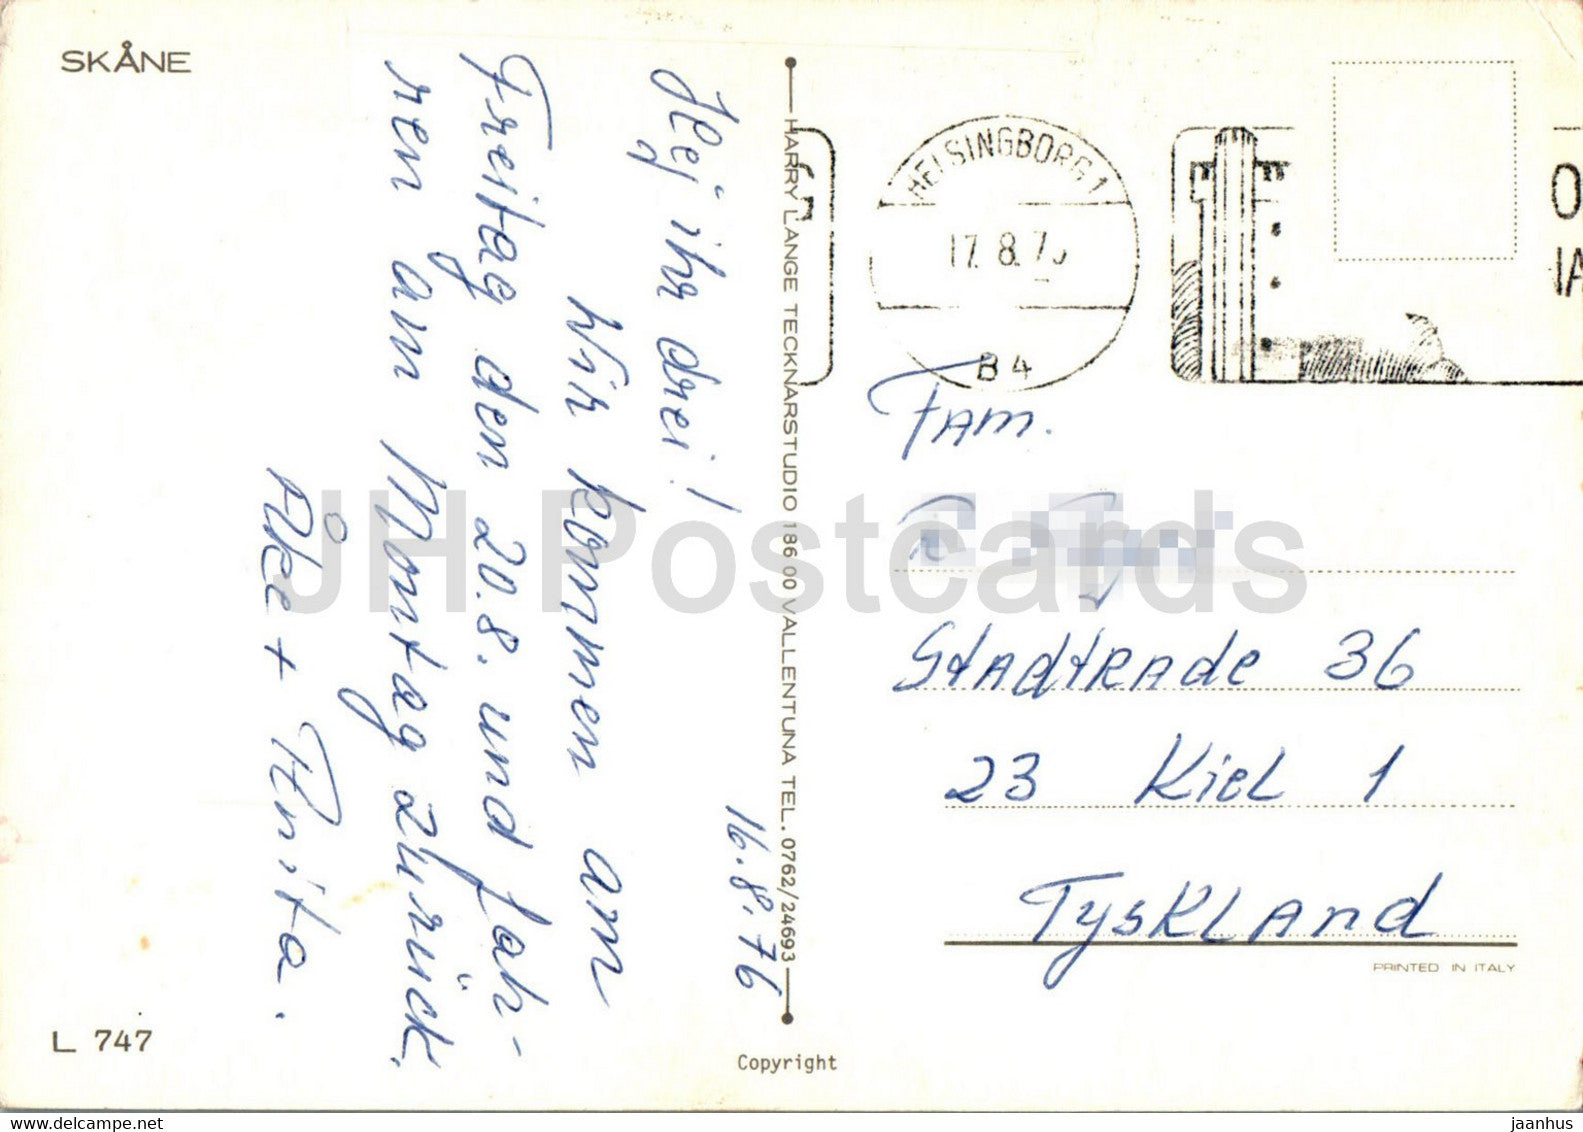 SKÅNE
16.8.76
Hej ihr drei!
Wir kommen am
Freitag den 20.8. und fah-
ren am Montag zurück.
Åke + Anita.
L 747
HARRY LANGE TECKNARSTUDIO 186 00 VALLENTUNA TEL. 0762/24693
Copyright
HELSINGBORG 1
17. 8. 7
B 4
O
IA
Fam.
Stadtrade 36
23 Kiel 1
Tyskland
PRINTED IN ITALY
JH Postcards
jaanhus ©delcampe.net